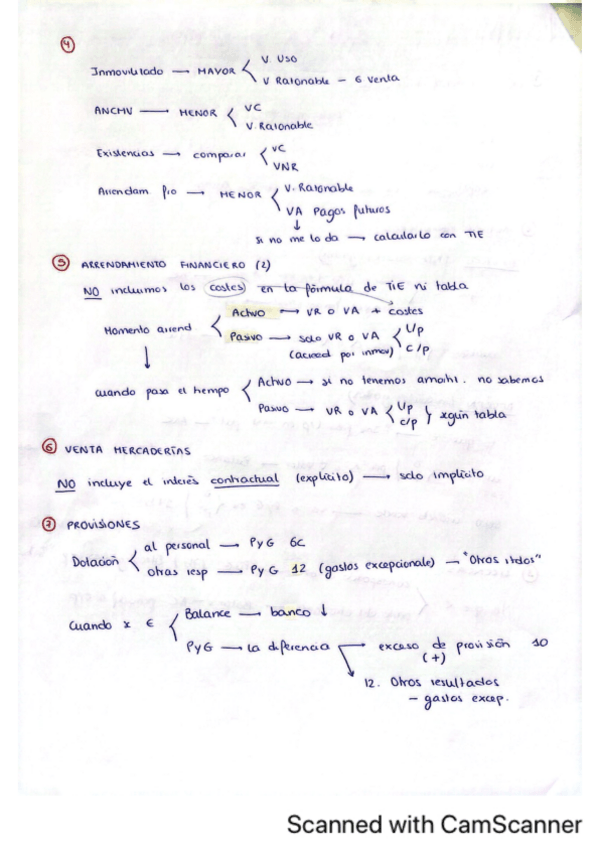 4
V USO
Inmovilizado → MAYOR <
V Razonable - G Venta
VC
ANCMV → MENOR <
V. Razonable
VC
Existencias → comparar <
VNR
V. Razonable
Arrendam fro → MENOR <
VA Pagos futuros
↓
si no me lo da → calcularlo con TIE
5 ARRENDAMIENTO FINANCIERO (2)
NO incluimos los costes en la fórmula de TIE ni tabla
Activo → VR o VA + costes
Momento arrend <
Pasivo → solo VR o VA < L/p c/p
(acreed por inmov)
↓
Activo → si no tenemos amorti. no sabemos
cuando pasa el tiempo <
Pasivo → VR o VA < L/p c/p } según tabla
6 VENTA MERCADERÍAS
NO incluye el interés contractual (explícito) → solo implícito
7 PROVISIONES
al personal → PyG 6c
Dotación <
otras resp → PyG 12 (gastos excepcionale) → "Otros rtdos"
Balance → banco ↓
Cuando x € <
PyG → la diferencia → exceso de provisión 10
(+)
12. Otros resultados
- gastos excep.
Scanned with CamScanner